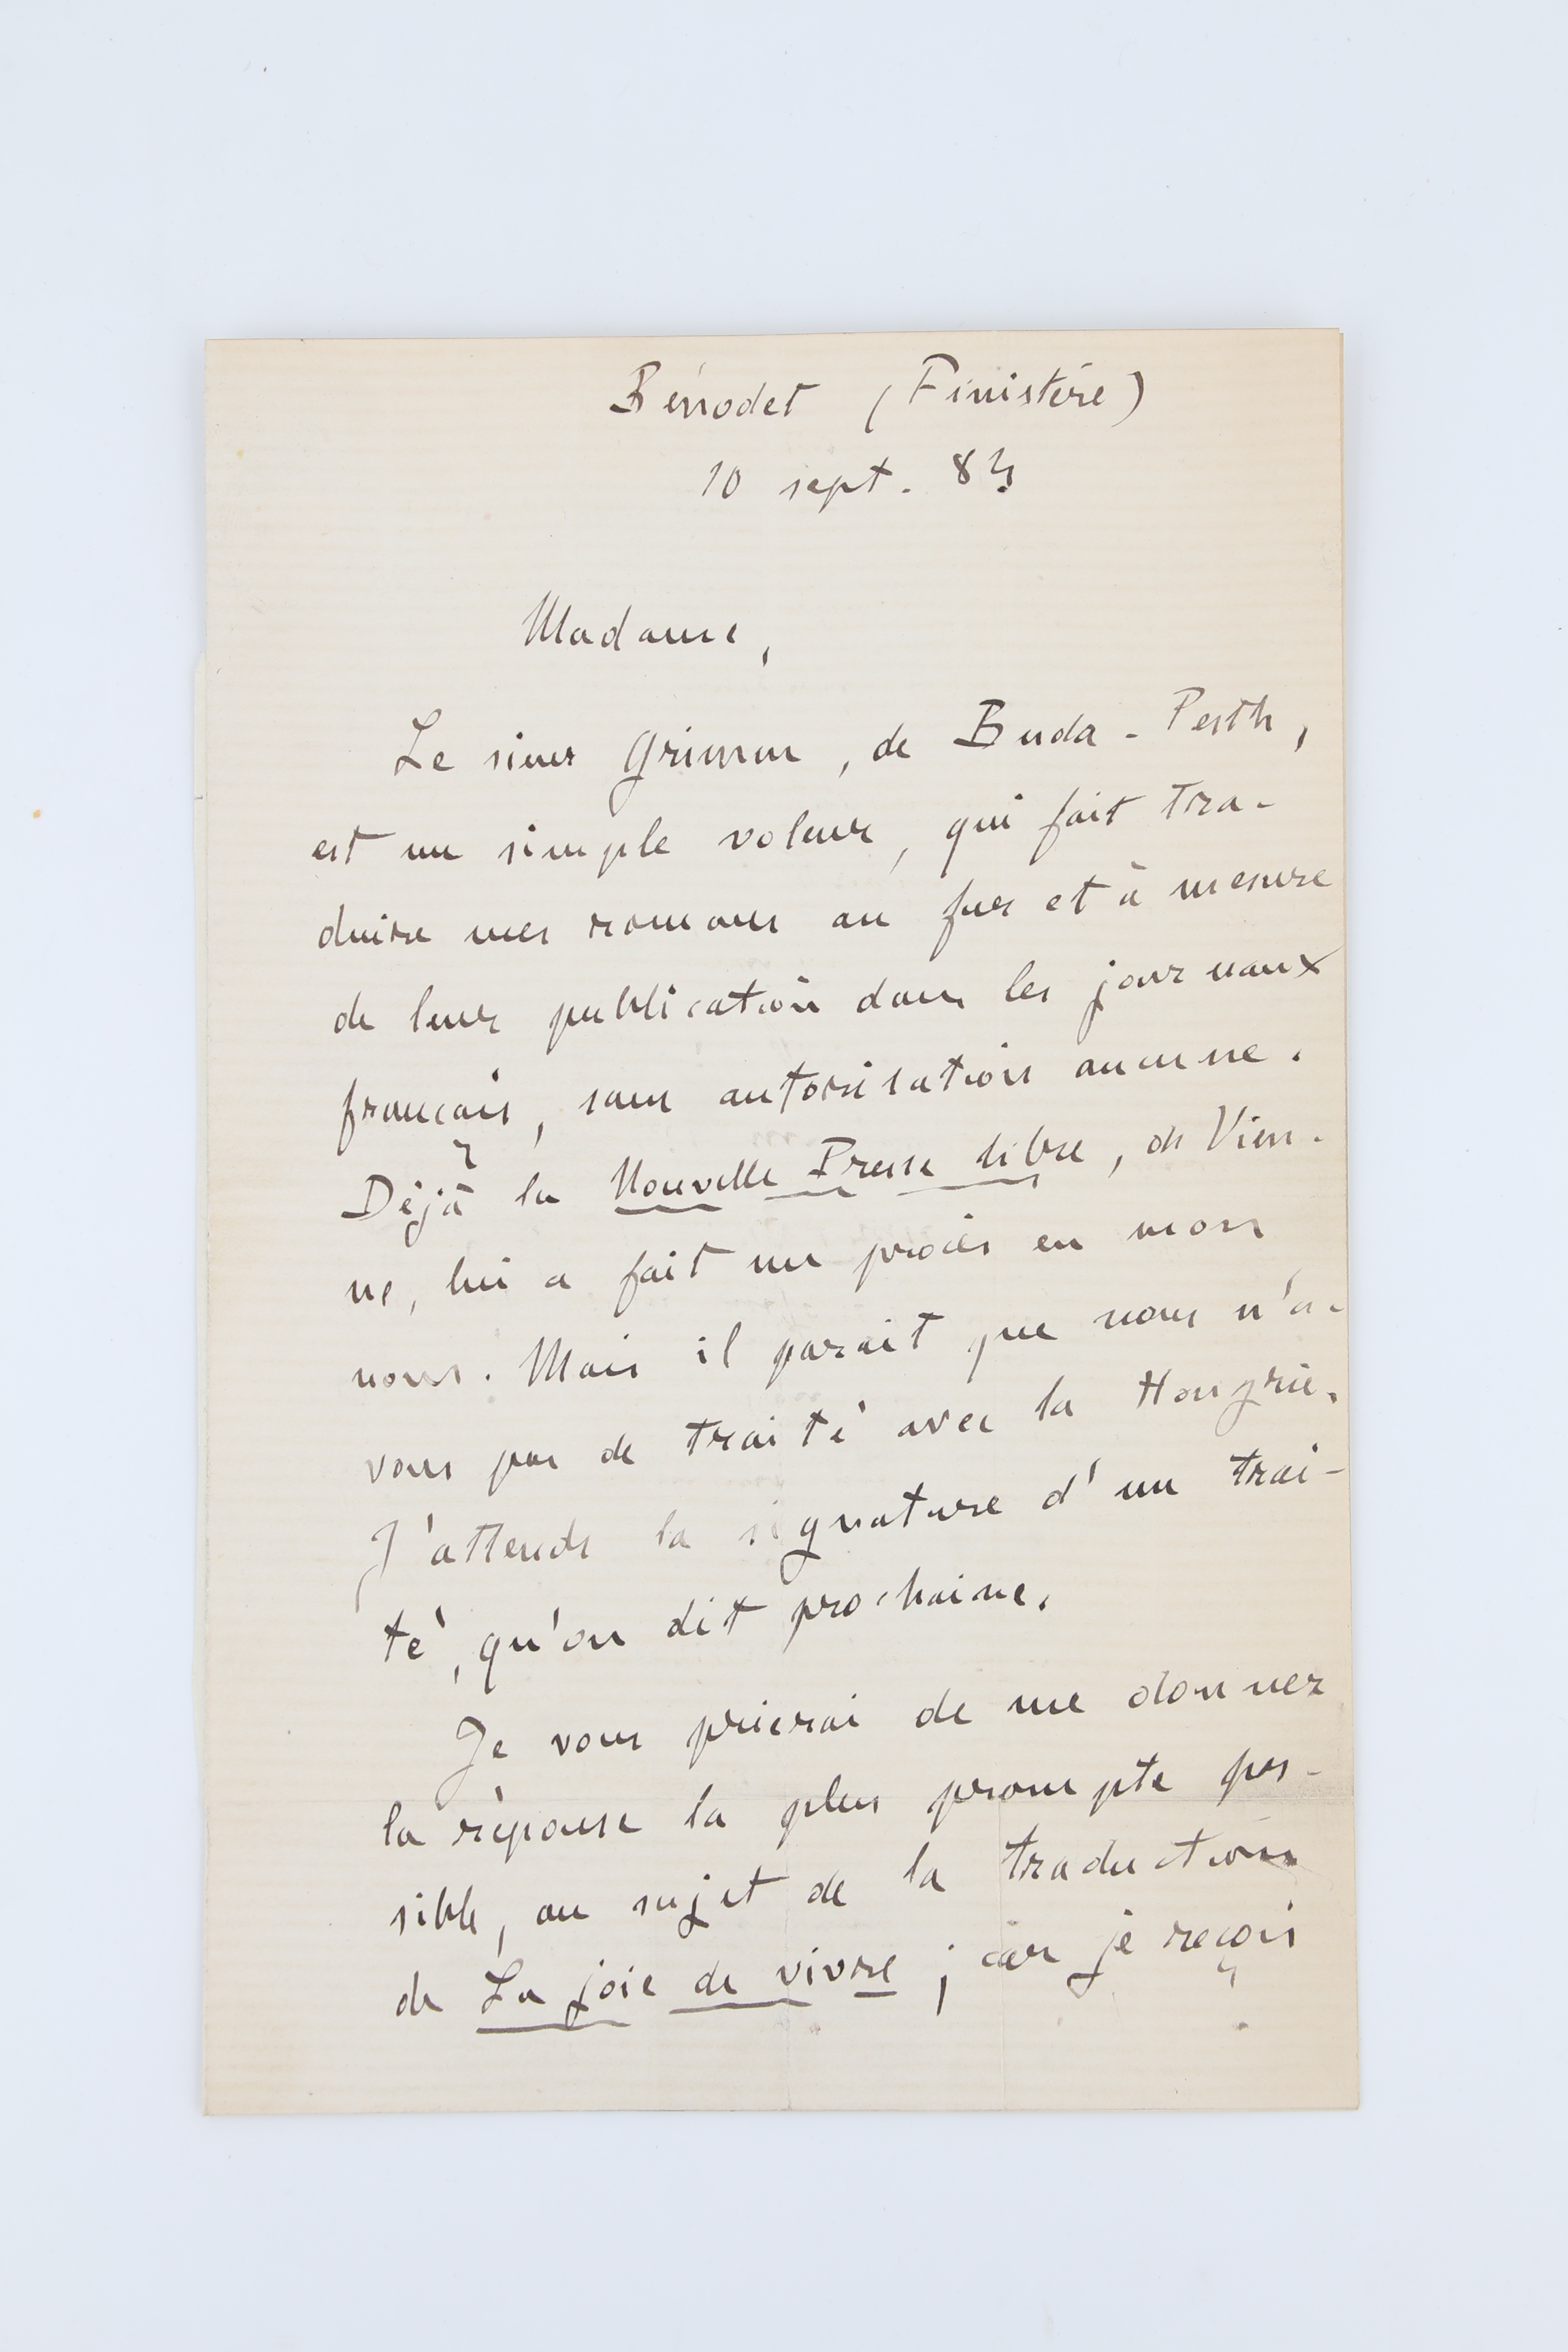 Bénodet (Finistère)
10 sept. 83
Madame,
Le sieur Grimm, de Buda-Pesth,
est un simple voleur, qui fait tra-
duire mes romans au fur et à mesure
de leur publication dans les journaux
français, sans autorisation aucune.
Déjà la Nouvelle Presse libre, de Vien-
ne, lui a fait un procès en mon
nom. Mais il parait que nous n'a-
vons pas de traité avec la Hongrie.
J'attends la signature d'un trai-
té, qu'on dit prochaine.
Je vous prierai de me donner
la réponse la plus prompte pos-
sible, au sujet de la traduction
de La joie de vivre ; car je reçois